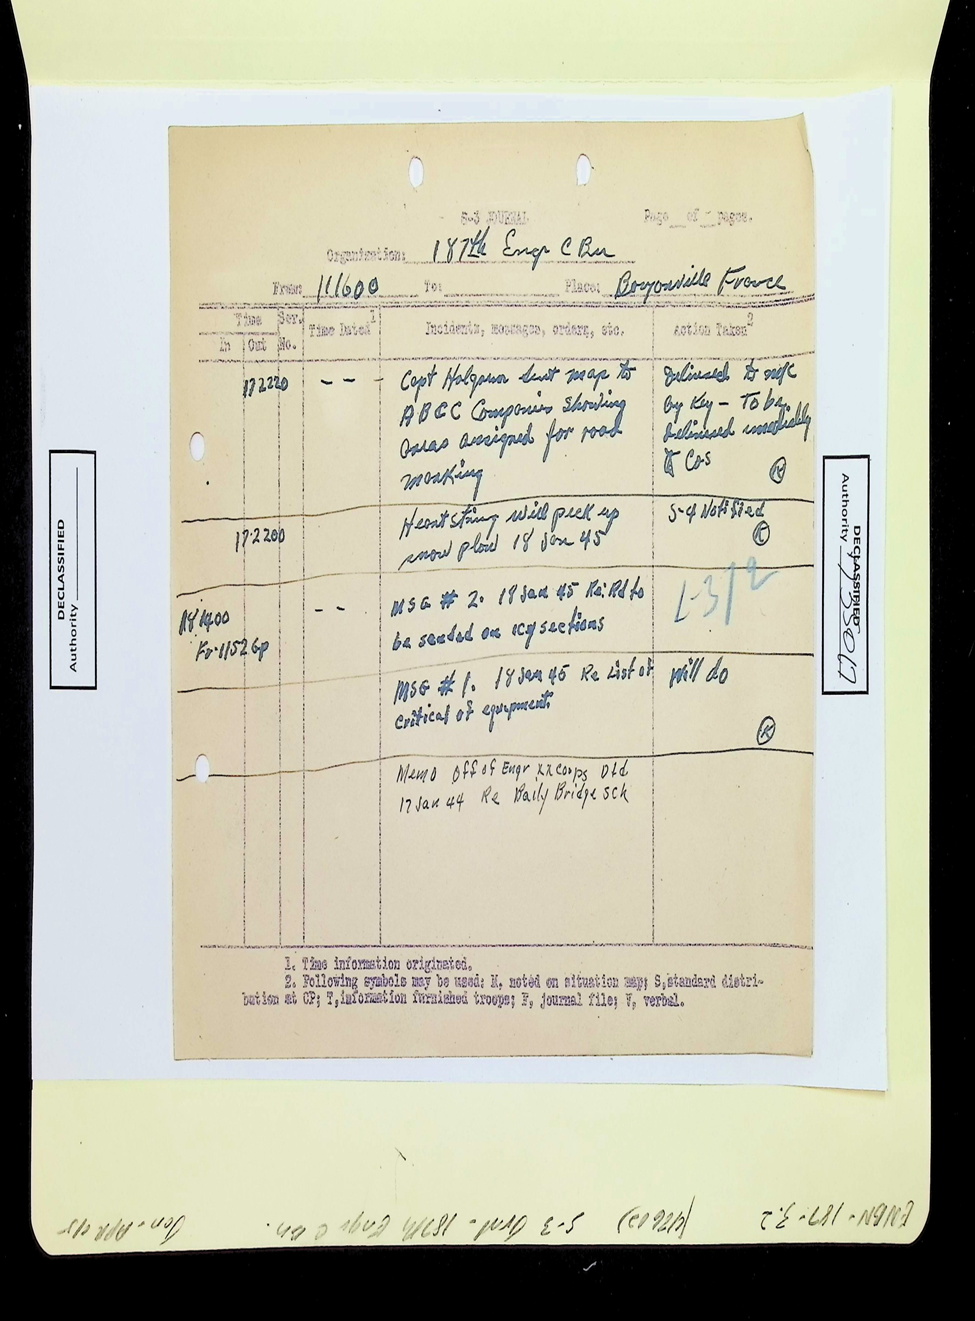 S-3 JOURNAL Page __ of __ pages.
Organization: 187th Engr C Bn
From: To: Place: France
Time Ser. Time Dated 1 Incidents, messages, orders, etc. Action Taken 2
In Out No.
172220 - - - Capt sent map to
A B & C Companies showing
areas assigned for road
marking
Delivered to
by Key - To be
delivered immediately
to Cos
K
172200 Heartstring will pick up
snow plow 18 Jan 45
S-4 Notified
K
181400
Fr. 1152 Gp
- - MSG # 2. 18 Jan 45 Re: Rd to
be sanded on icy sections
L-3/2
MSG # 1. 18 Jan 45 Re List of
critical of equipment
Will do
K
Memo Off of Engr XX Corps Dtd
17 Jan 44 Re Baily Bridge sch
1. Time information originated.
2. Following symbols may be used: M, noted on situation map; S, standard distri-
bution at CP; T, information furnished troops; F, journal file; V, verbal.
DECLASSIFIED
Authority
DECLASSIFIED
Authority
ENBN-187-3.2 (47602) S-3 Jrnl - 187th Engr C Bn. Jan-Apr 45